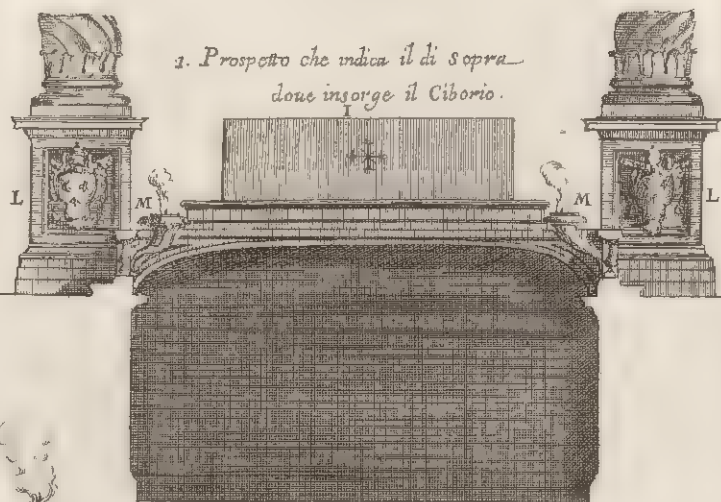 1. Prospetto che indica il di sopra
doue insorge il Ciborio.
I
L M M L